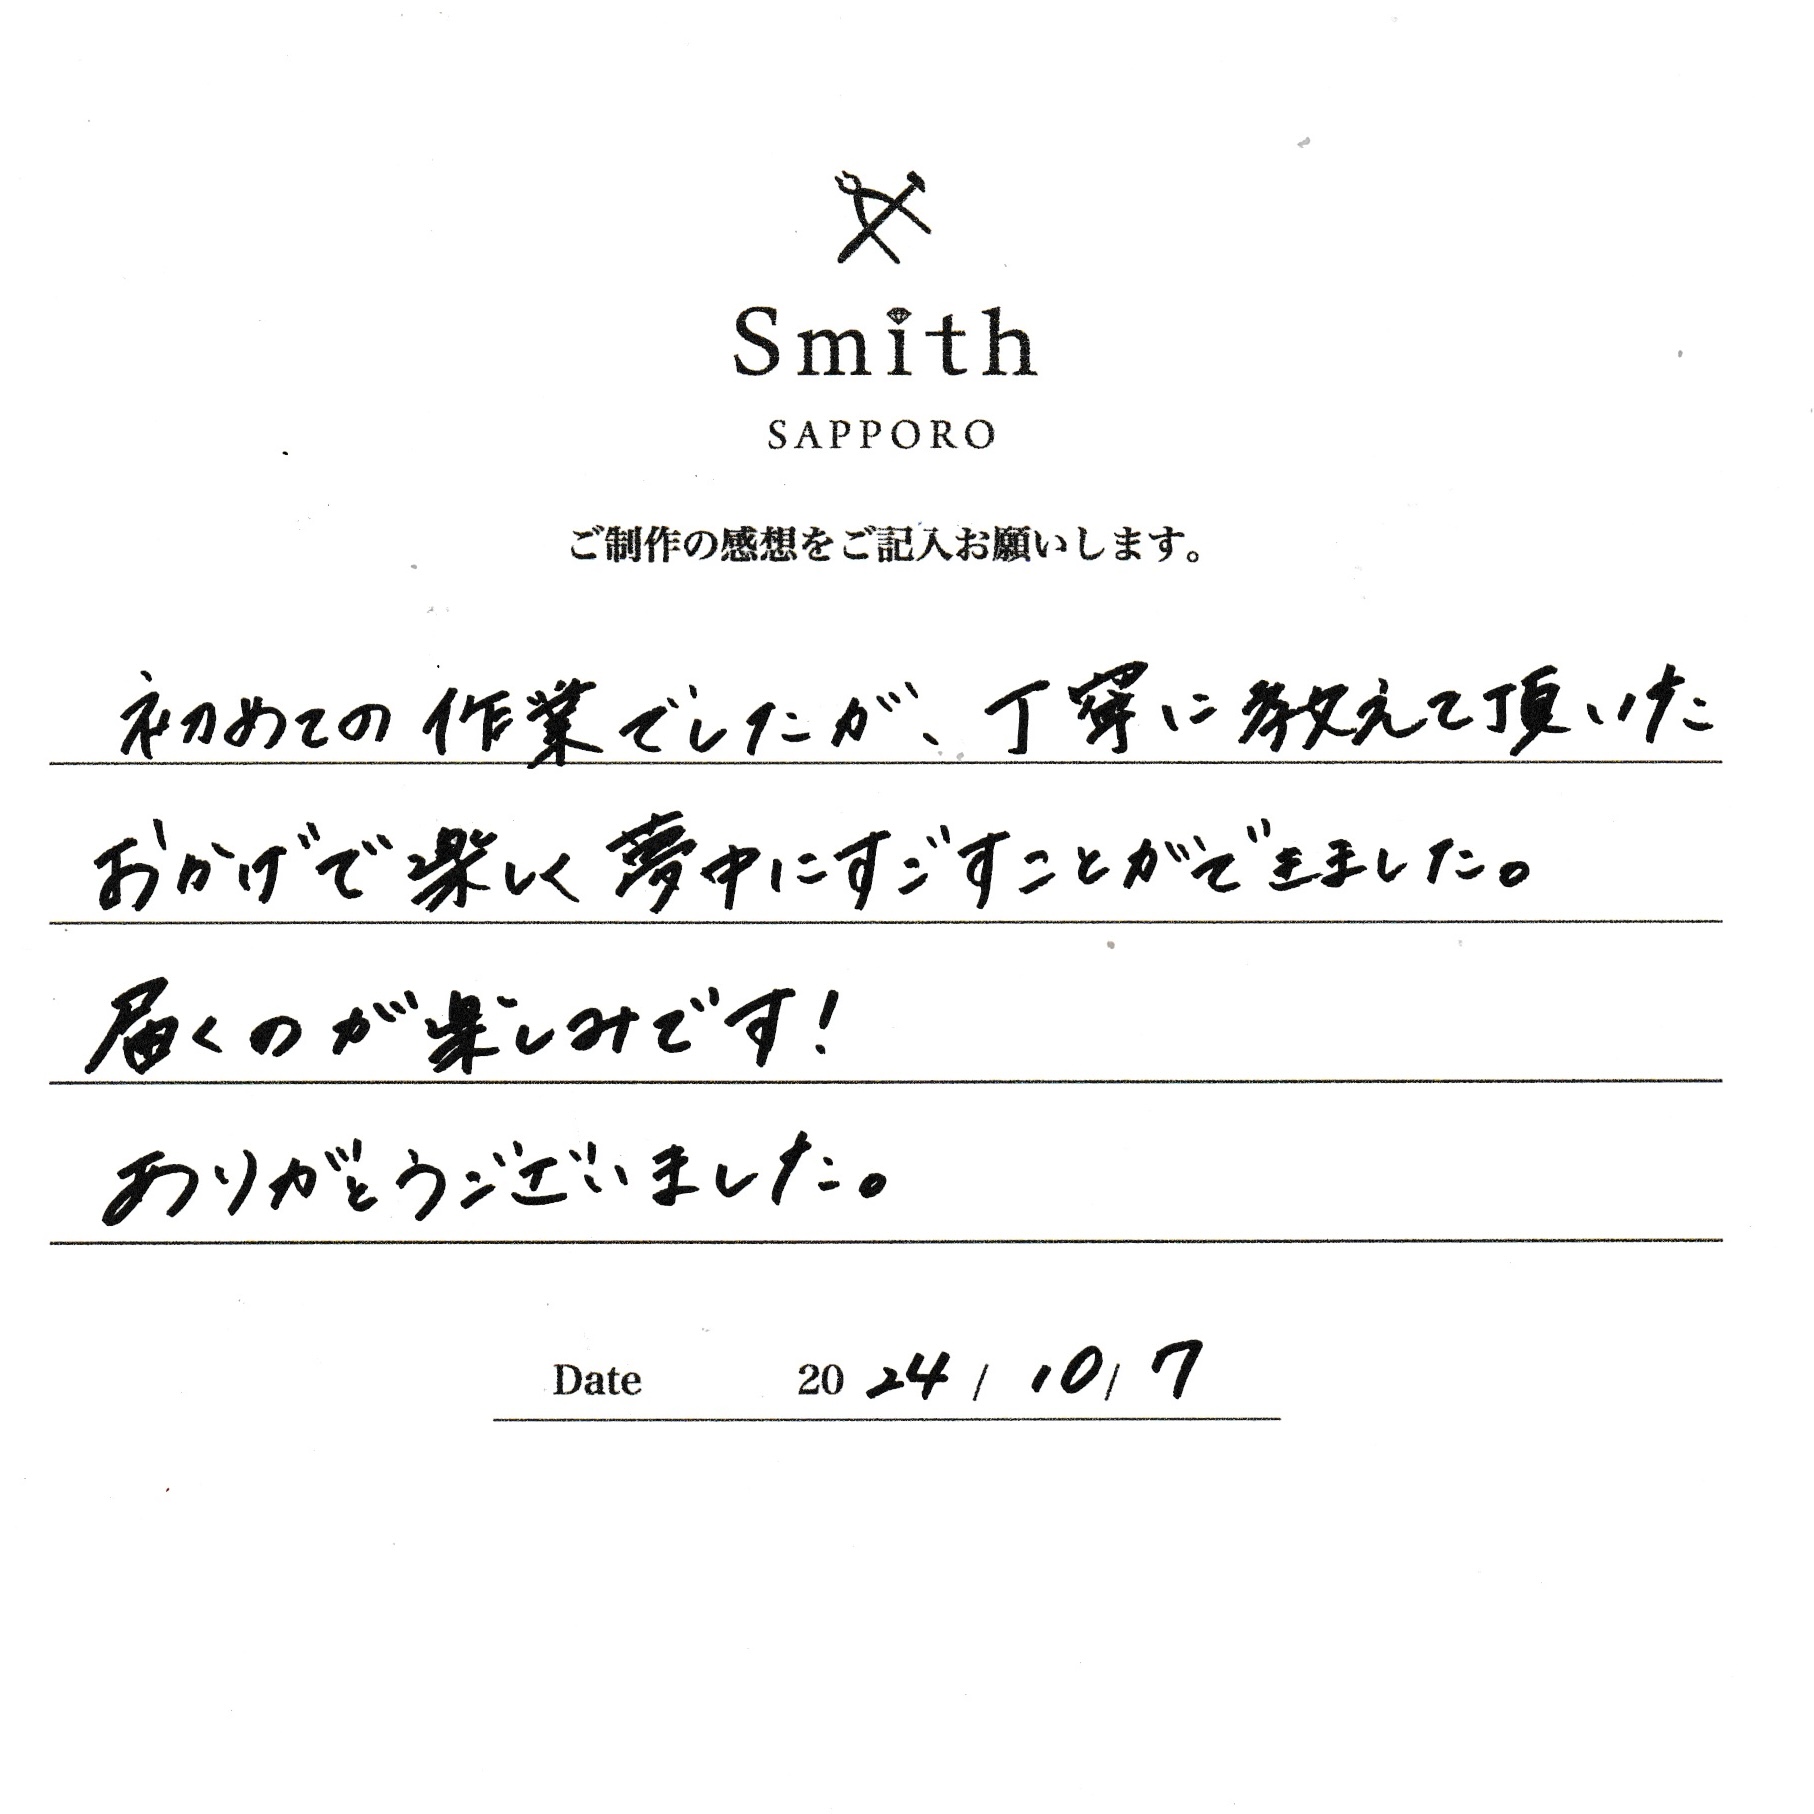 Smith
SAPPORO
ご制作の感想をご記入お願いします。
初めての作業でしたが、丁寧に教えて頂いた
おかげで楽しく夢中にすごすことができました。
届くのが楽しみです!
ありがとうございました。
Date 2024/10/7